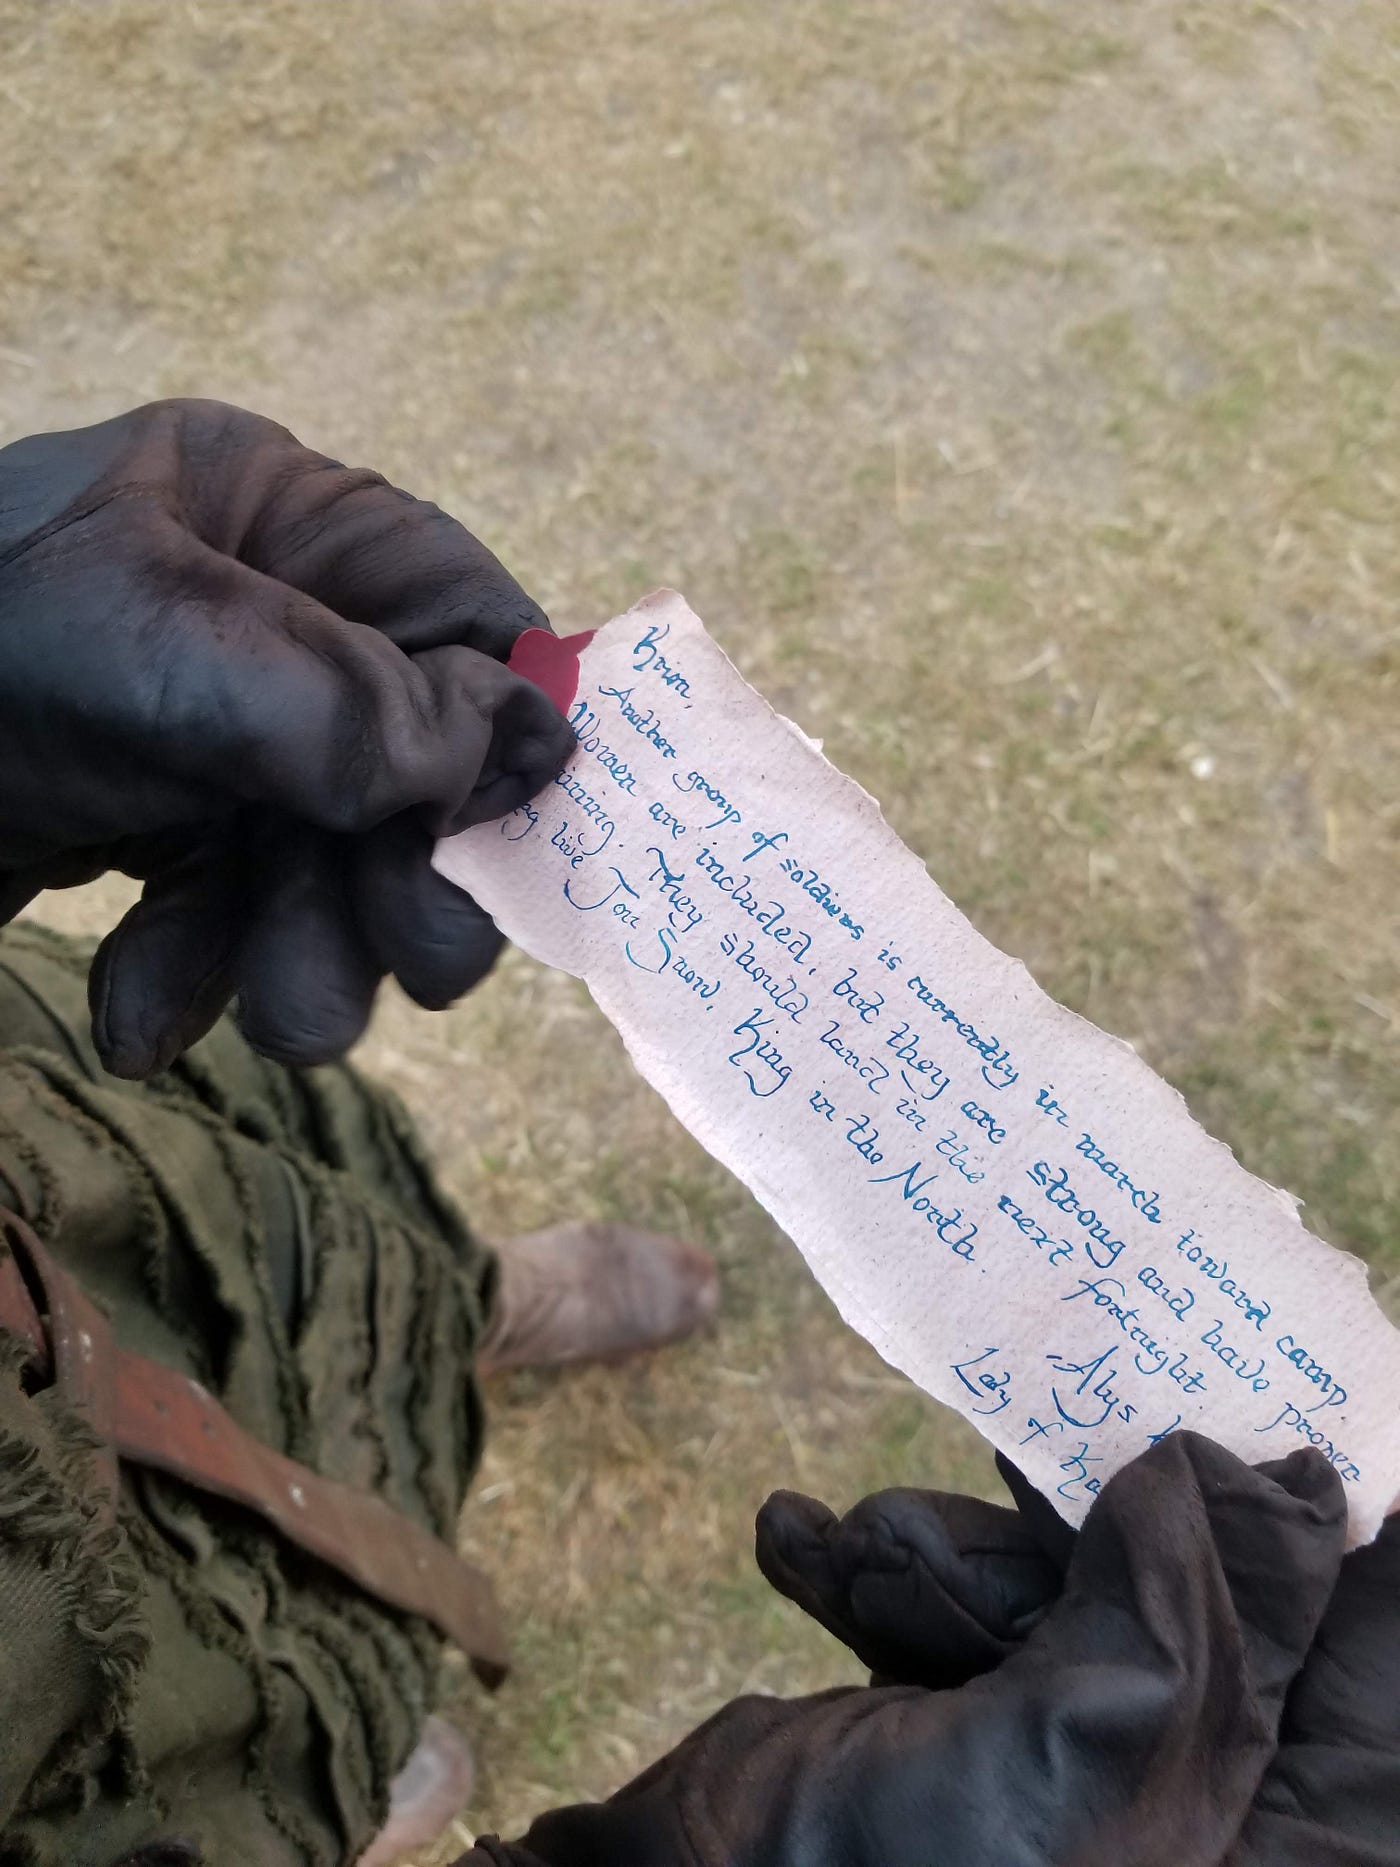 Krion,
Another group of soldiers is currently in march toward camp.
Women are included, but they are strong and have proper
aining. They should land in the next fortnight.
ng live Jon Snow, King in the North.
-Alys
Lady of Ka